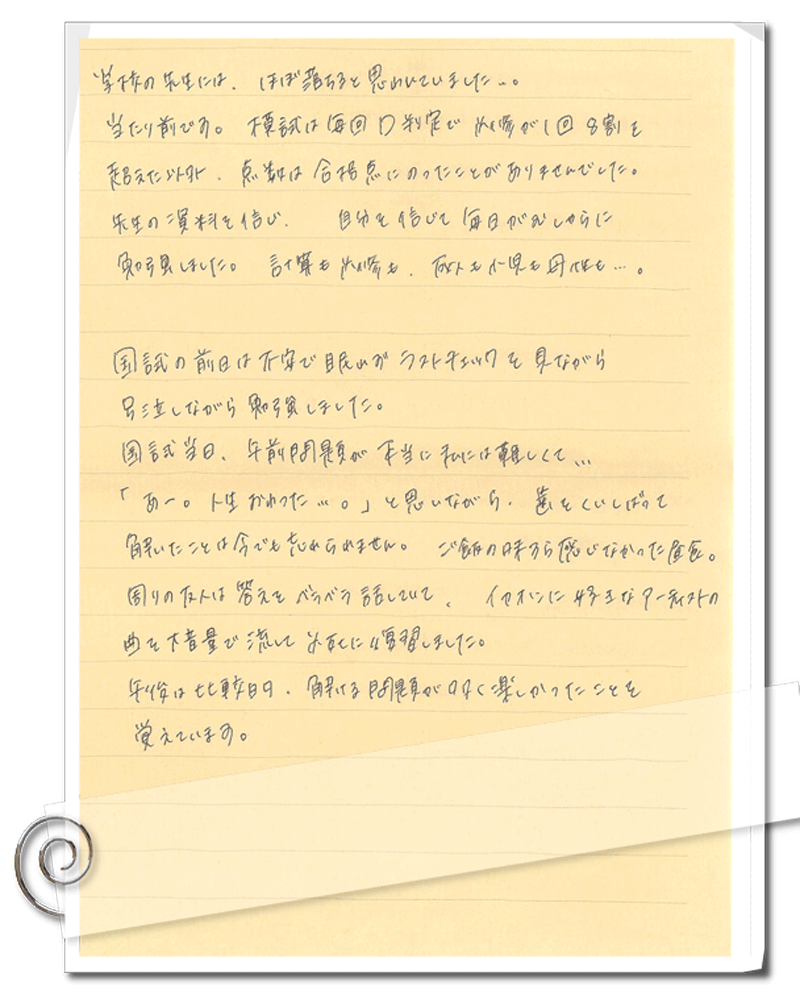 学校の先生には、ほぼ落ちると思われていました…。
当たり前です。模試は毎回D判定で必修が1回8割を
超えた以外、点数は合格点にのったことがありませんでした。
先生の資料を信じ、自分を信じて毎日がむしゃらに
勉強しました。計算も必修も、成人も小児も母性も…。
国試の前日は不安で眠れずラストチェックを見ながら
号泣しながら勉強しました。
国試当日、午前問題が本当に私には難しくて…
「あー。人生おわった…。」と思いながら、歯をくいしばって
解いたことは今でも忘れられません。ご飯の味すら感じなかった昼食。
周りの友人は答えをペラペラ話していて、イヤホンに好きなアーティストの
曲を大音量で流して必死に復習しました。
午後は比較的、解ける問題が多く楽しかったことを
覚えています。